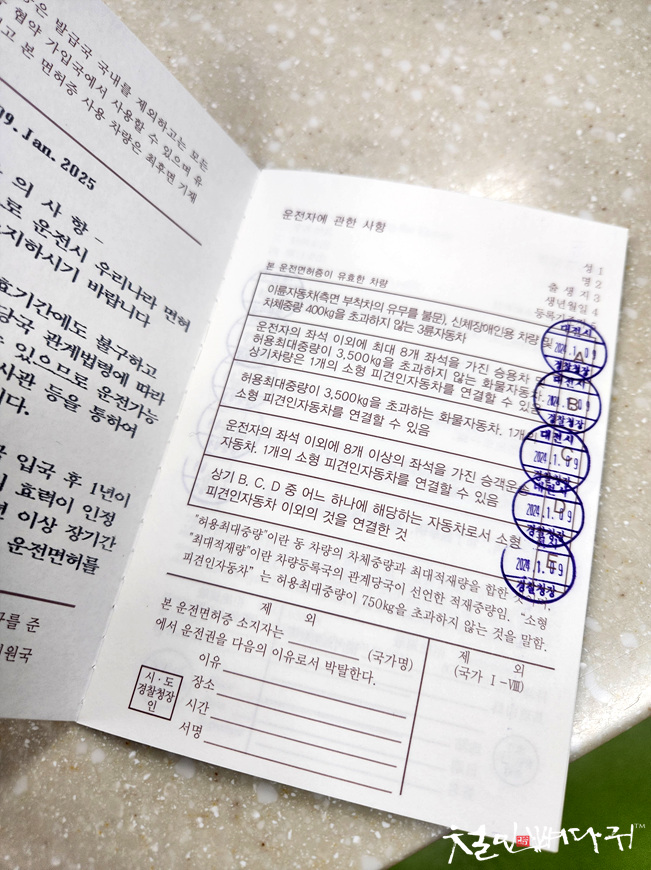 은 발급국 국내를 제외하고는 모든
협약 가입국에서 사용할 수 있으며 유
고 본 면허증 사용 차량은 최후면 기재
09. Jan. 2025
의 사 항 -
로 운전시 우리나라 면허
지하시기 바랍니다
효기간에도 불구하고
당국 관계법령에 따라
수 있으므로 운전가능
사관 등을 통하여
니다.
입국 후 1년이
효력이 인정
년 이상 장기간
운전면허를
구를 준
원국
운전자에 관한 사항
성 1
명 2
출 생 지 3
생년월일 4
본 운전면허증이 유효한 차량
이륜자동차(측면 부착차의 유무를 불문), 신체장애인용 차량 및
차체중량 400kg을 초과하지 않는 3륜자동차
A
운전자의 좌석 이외에 최대 8개 좌석을 가진 승용차
허용최대중량이 3,500kg을 초과하지 않는 화물자동차.
상기차량은 1개의 소형 피견인자동차를 연결할 수 있음
B
허용최대중량이 3,500kg을 초과하는 화물자동차. 1개의
소형 피견인자동차를 연결할 수 있음
C
운전자의 좌석 이외에 8개 이상의 좌석을 가진 승객운
자동차. 1개의 소형 피견인자동차를 연결할 수 있음
D
상기 B, C, D 중 어느 하나에 해당하는 자동차로서 소형
피견인자동차 이외의 것을 연결한 것
E
대전시
2024. 1. 09
경찰청장
대전시
2024. 1. 09
경찰청장
대전시
2024. 1. 09
경찰청장
대전시
2024. 1. 09
경찰청장
2024. 1. 09
경찰청장
"허용최대중량"이란 동 차량의 차체중량과 최대적재량을 합한 것
"최대적재량"이란 차량등록국의 관계당국이 선언한 적재중량임. "소형
피견인자동차" 는 허용최대중량이 750kg을 초과하지 않는 것을 말함.
제 외
본 운전면허증 소지자는 (국가명)
에서 운전권을 다음의 이유로서 박탈한다.
이유
장소
시간
서명
시·도
경찰청장
인
제 외
(국가 Ⅰ-Ⅷ)